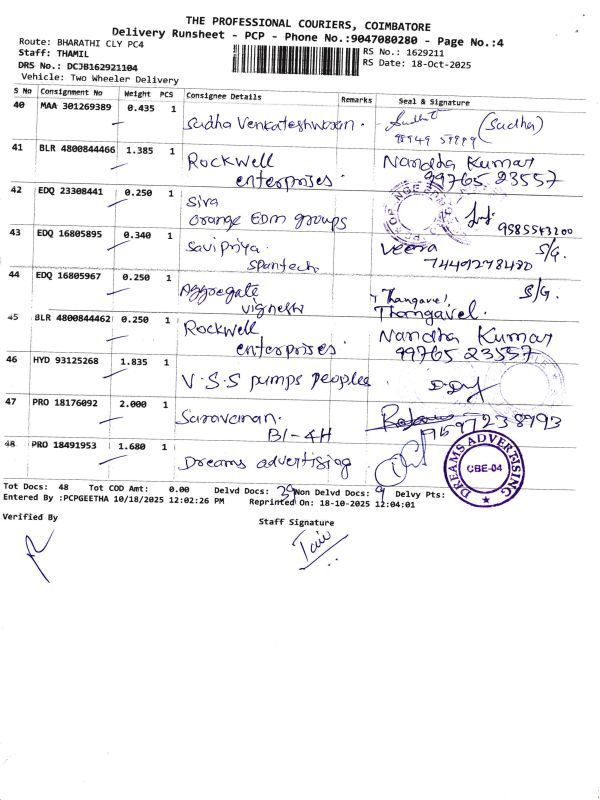 THE PROFESSIONAL COURIERS, COIMBATORE
Delivery Runsheet - PCP - Phone No.:9047080280 - Page No.:4
Route: BHARATHI CLY PC4 RS No.: 1629211
Staff: THAMIL RS Date: 18-Oct-2025
DRS No.: DCJB162921104
Vehicle: Two Wheeler Delivery
S No Consignment No Weight PCS Consignee Details Remarks Seal & Signature
40 MAA 301269389 0.435 1 Sudha Venkateshwaran. (Sudha)
41 BLR 4800844466 1.385 1 Rockwell Nandha Kumar
enterprises. 99765 23557
42 EDQ 23308441 0.250 1 Siva
orange EDM groups 9585543200
43 EDQ 16805895 0.340 1 Savipriya. Veera S/G.
Spantech. 74491278480
44 EDQ 16805967 0.250 1 Aggregate Thangavel, S/G.
vignesh Thangavel.
45 BLR 4800844462 0.250 1 Rockwell Nandha Kumar
enterprises. 99765 23557
46 HYD 93125268 1.835 1 V.S.S pumps peoplee
47 PRO 18176092 2.000 1 Saravanan.
B1-4H 9597238993
48 PRO 18491953 1.680 1 Dreams advertising
DREAMS ADVERTISING
CBE-04
Tot Docs: 48 Tot COD Amt: 0.00 Delvd Docs: 39 Non Delvd Docs: 9 Delvy Pts:
Entered By :PCPGEETHA 10/18/2025 12:02:26 PM Reprinted On: 18-10-2025 12:04:01
Verified By Staff Signature